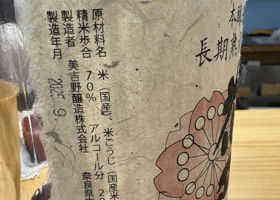 本醸
長期熟
原材料名 米(国産)、米こうじ(国産米
精米歩合 70% アルコール分 2
製造者 美吉野醸造株式会社
奈良県
製造年月 2025.9.